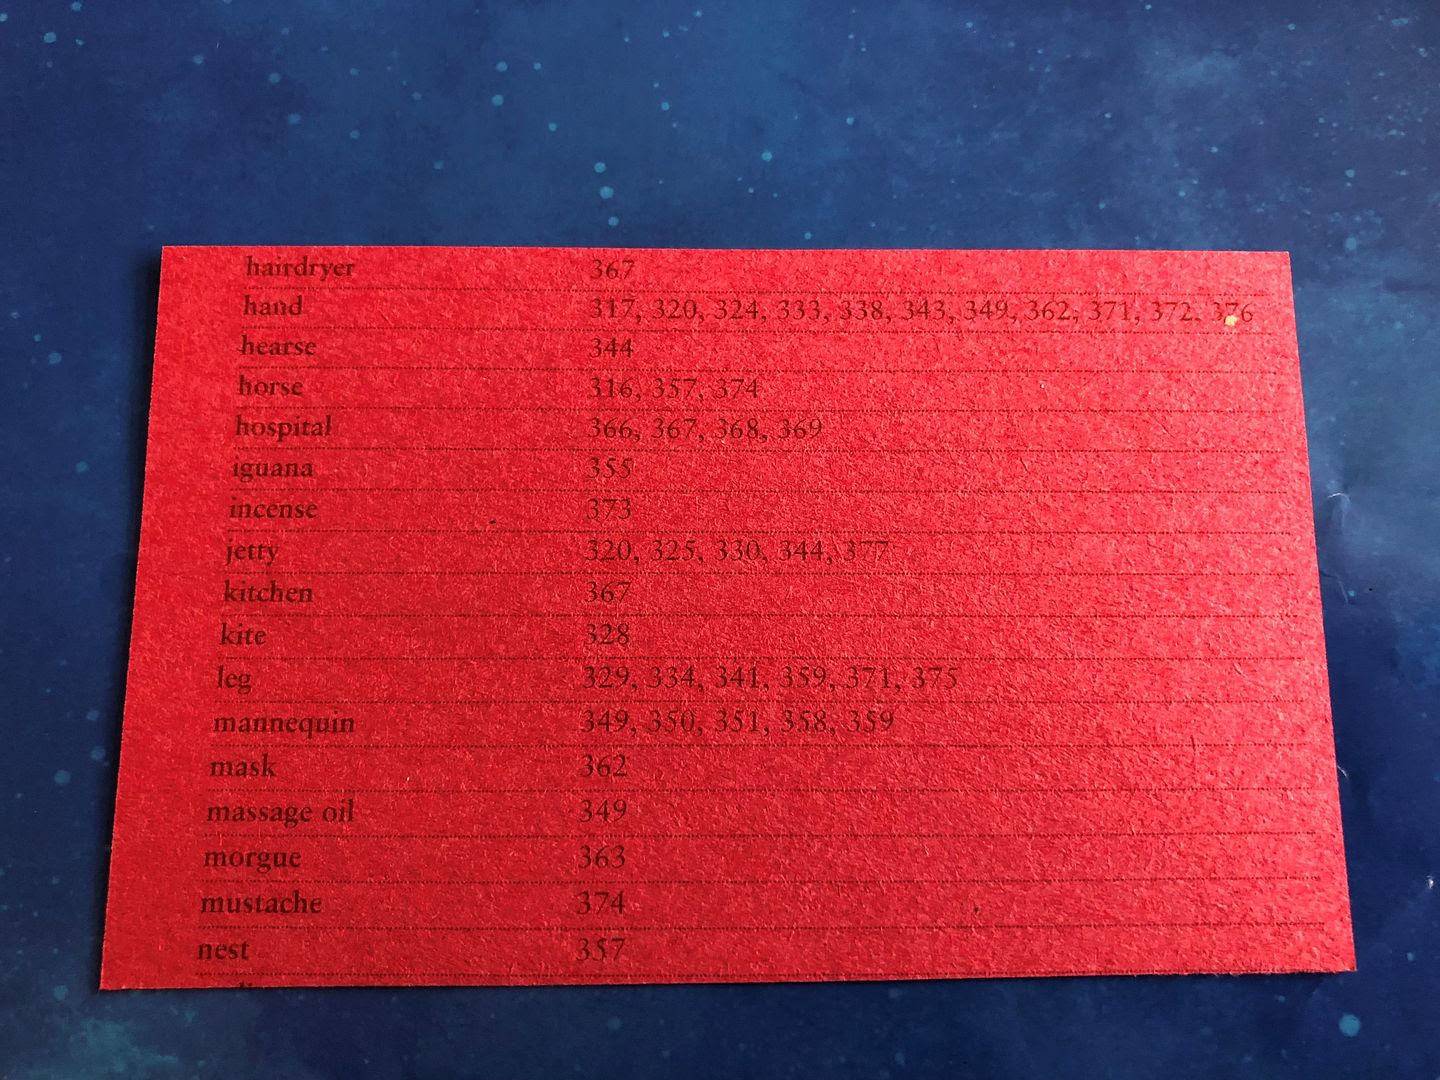 hairdryer 367
hand 317, 320, 324, 333, 338, 343, 349, 362, 371, 372, 376
hearse 344
horse 316, 357, 374
hospital 366, 367, 368, 369
iguana 355
incense 373
jetty 320, 325, 330, 344, 377
kitchen 367
kite 328
leg 329, 334, 341, 359, 371, 375
mannequin 349, 350, 351, 358, 359
mask 362
massage oil 349
morgue 363
mustache 374
nest 357